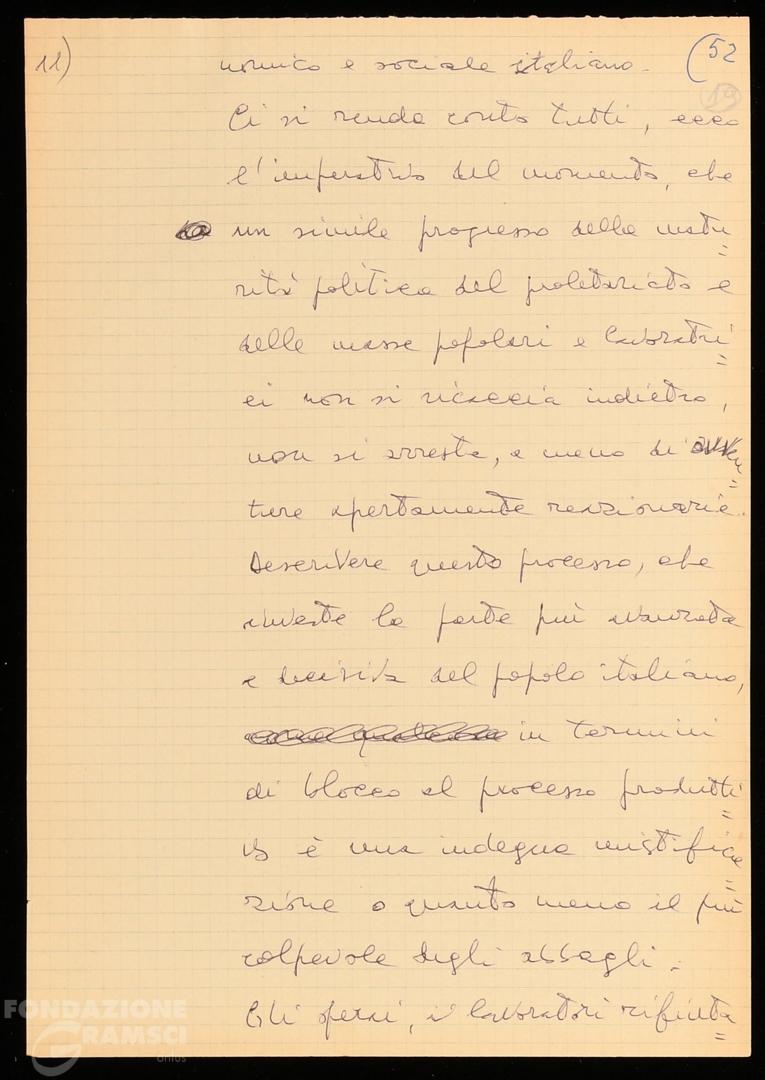 11)
(52
19
nomico e sociale italiano.
Ci si renda conto tutti, ecco
l'imperativo del momento, che
un simile progresso della matu=
rità politica del proletariato e
delle masse popolari e lavoratri=
ci non si ricaccia indietro,
non si arresta, a meno di avven=
ture apertamente reazionarie.
Descrivere questo processo, che
investe la parte più avanzata
e decisiva del popolo italiano,
in termini
di blocco al processo produtti=
vo è una indegna mistifica=
zione o quanto meno il più
colpevole degli abbagli.
Gli operai, i lavoratori rifiuta=
FONDAZIONE
GRAMSCI
onlus